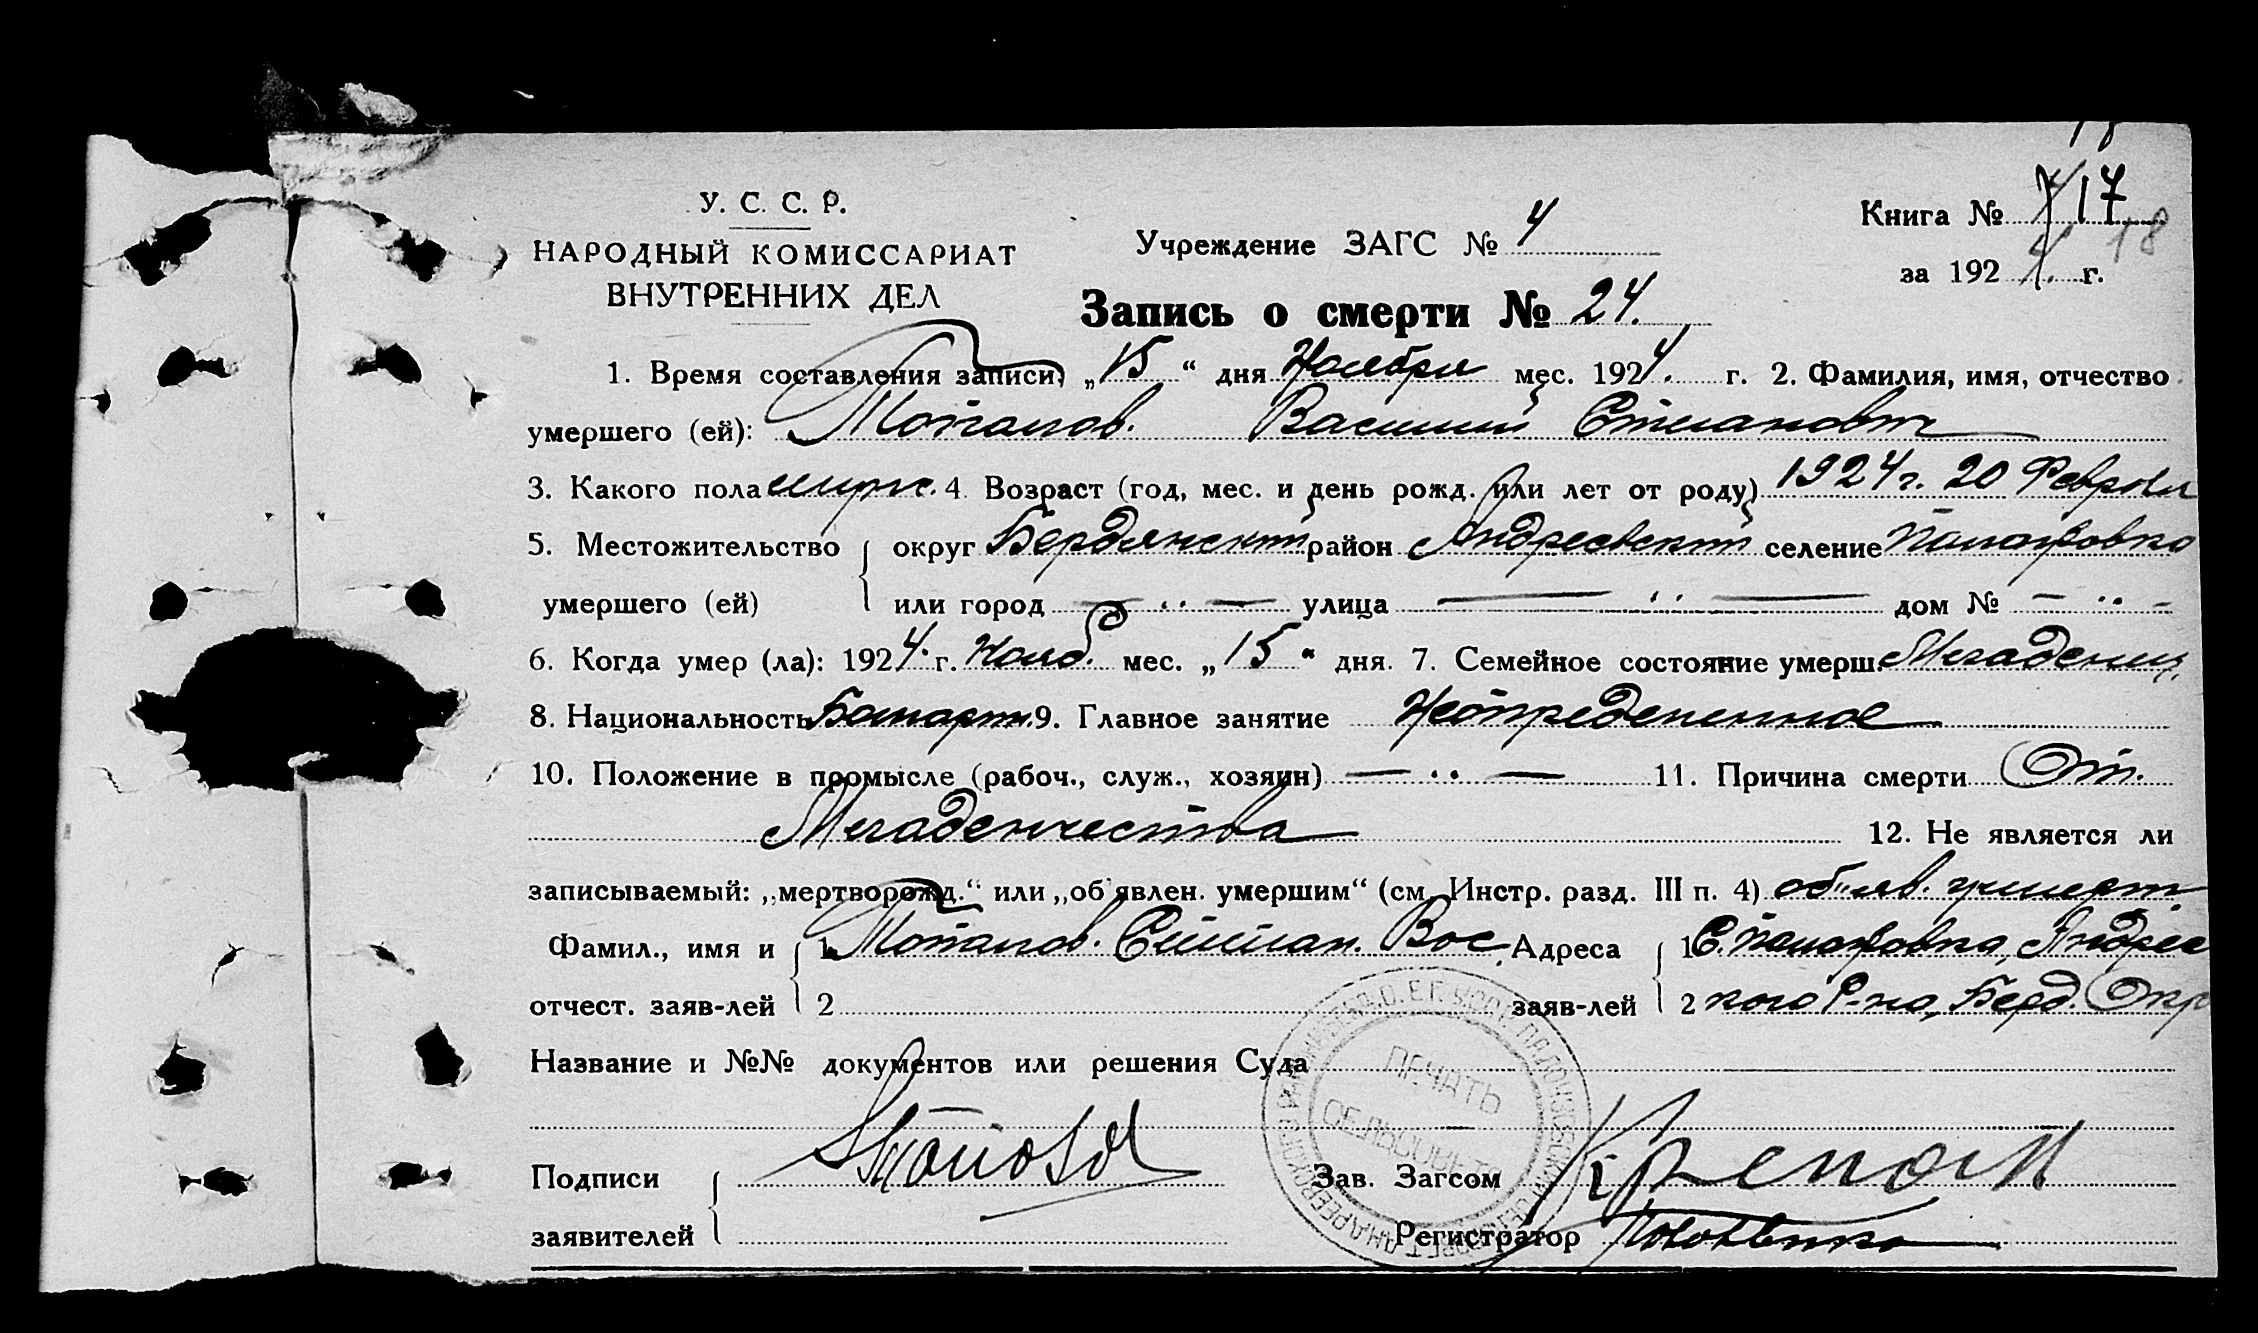 У. С. С. Р.
НАРОДНЫЙ КОМИССАРИАТ
ВНУТРЕННИХ ДЕЛ
Учреждение ЗАГС № 4
Книга № 17
18
за 192 г.
Запись о смерти № 24.
1. Время составления записи, „15“ дня Ноября мес. 1924. г. 2. Фамилия, имя, отчество
умершего (ей): Топалов. Василий Степанович
3. Какого пола мужс. 4. Возраст (год, мес. и день рожд. или лет от роду) 1924 г. 20 Февраля
5. Местожительство округ Бердянский район Андреевский селение
умершего (ей) или город — ·· — улица — ·· — дом № — ·· —
6. Когда умер (ла): 1924. г. Нояб. мес. „15“ дня. 7. Семейное состояние умерш. Младенец
8. Национальность 9. Главное занятие
10. Положение в промысле (рабоч., служ., хозяин) — ·· — 11. Причина смерти От
Младенчества 12. Не является ли
записываемый: „мертворожд.“ или „об'явлен. умершим“ (см. Инстр. разд. III п. 4) об"яв. умерш.
Фамил., имя и 1 Топалов. Степан. Вас. Адреса 1 С.
отчест. заяв-лей 2 заяв-лей 2 кого Р-на, Берд. Окр
Название и №№ документов или решения Суда
ПЕЧАТЬ
СЕЛЬСОВЕТА
Подписи
Зав. Загсом
заявителей
Регистратор